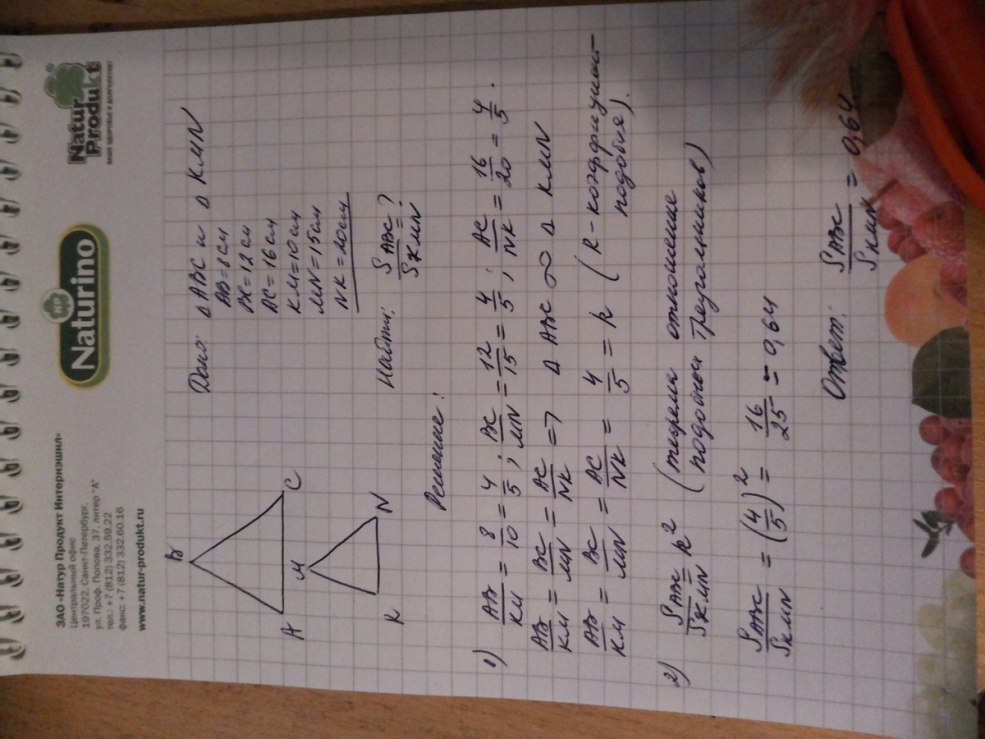 ЗАО «Натур Продукт Интернэшнл»
Центральный офис
197022, Санкт-Петербург,
ул. Проф. Попова, 37, литер "А"
тел.: +7 (812) 332.59.22
факс: +7 (812) 332.60.16
www.natur-produkt.ru
Naturino
Natur
Produkt
B
A
C
M
K
N
Дано: Δ ABC и Δ KMN
AB=8см
BC=12см
AC=16см
KM=10см
MN=15см
NK=20см
Найти: SABC/SKMN=?
Решение:
1) AB/KM = 8/10 = 4/5; BC/MN = 12/15 = 4/5; AC/NK = 16/20 = 4/5.
AB/KM = BC/MN = AC/NK => Δ ABC ∞ Δ KMN
AB/KM = BC/MN = AC/NK = 4/5 = k (k-коэффициент
подобия).
2) SABC/SKMN = k² (теорема отношение
подобных треугольников)
SABC/SKMN = (4/5)² = 16/25 = 0,64
Ответ: SABC/SKMN = 0,64.